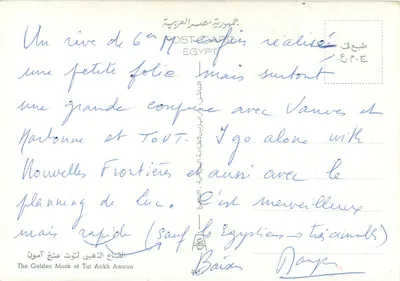 جمهورية مصر العربية
POSTCARD
EGYPT
طبع فى
ج.م.ع.
Un rêve de 6è enfin réalisé
une petite folie mais surtout
une grande confiance avec Vanves et
Narbonne et TOUT. I go alone with
Nouvelles Frontières et aussi avec le
planning de luc. C'est merveilleux
mais rapide (sauf les Egyptiens → traînants)
القناع الذهبى لتوت عنخ آمون
The Golden Mask of Tut Ankh Amoun
Baises